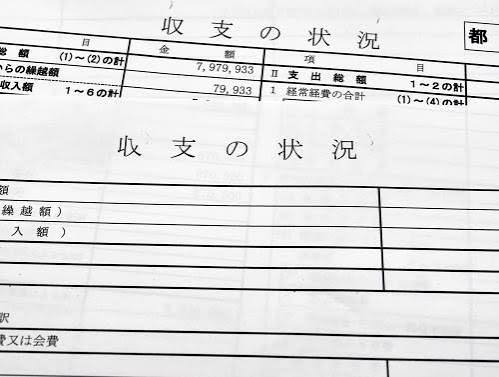 収支の状況
都
目 金額 項目
総額 (1)～(2)の計 7,979,933 Ⅱ 支出総額 1～2の計
からの繰越額 79,933 1 経常経費の合計 (1)～(4)の計
収入額 1～6の計
収支の状況
額
繰越額)
入額)
訳
費又は会費